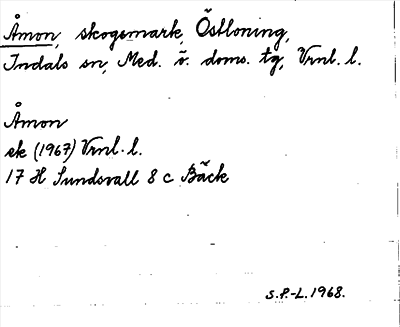 Åmon, skogsmark, Östloning,
Indals sn, Med. v. doms. tg, Vrnl. l.
Åmon
ek (1967) Vrnl. l.
17 H Sundsvall 8 c Bäck
S.P.-L. 1968.